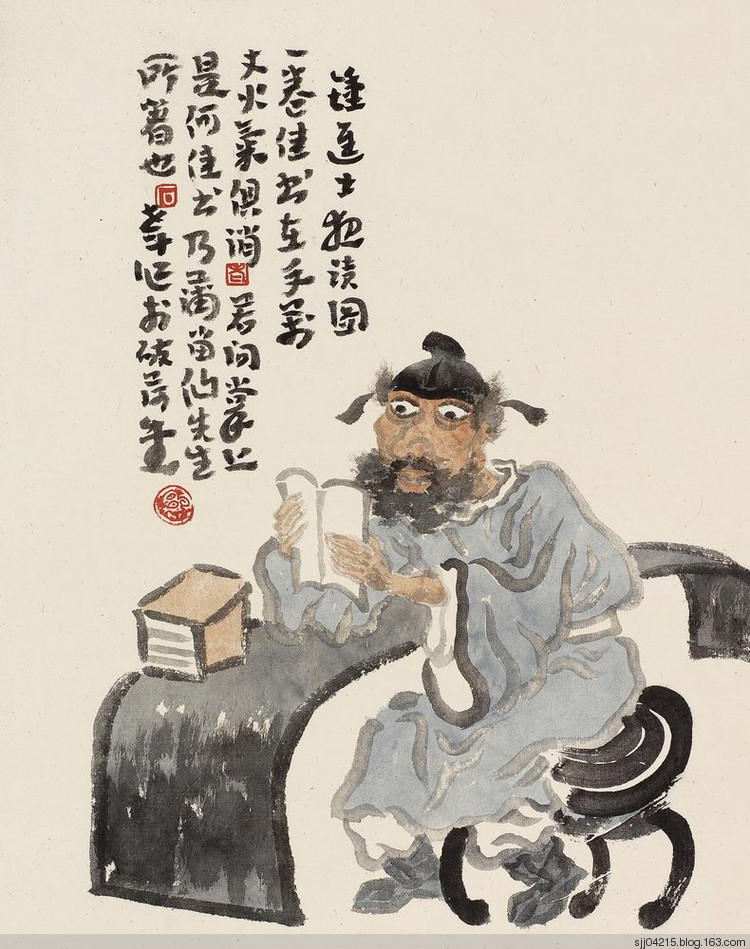 鍾進士夜读圖
一卷佳书在手万
丈火氣俱消若问掌上
是何佳书乃蒲留仙先生
所著也 石 作於破荷
sjj04215.blog.163.com